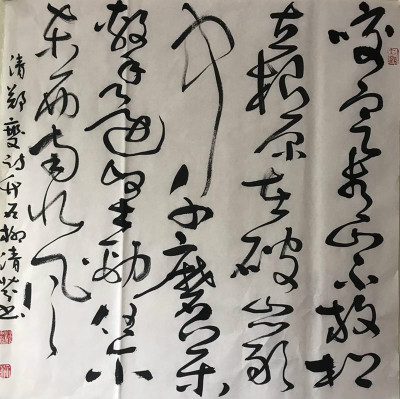 咬定青山不放松
立根原在破岩
中千磨萬
擊還堅勁任尔
东西南北风
清郑燮诗竹石柳清书